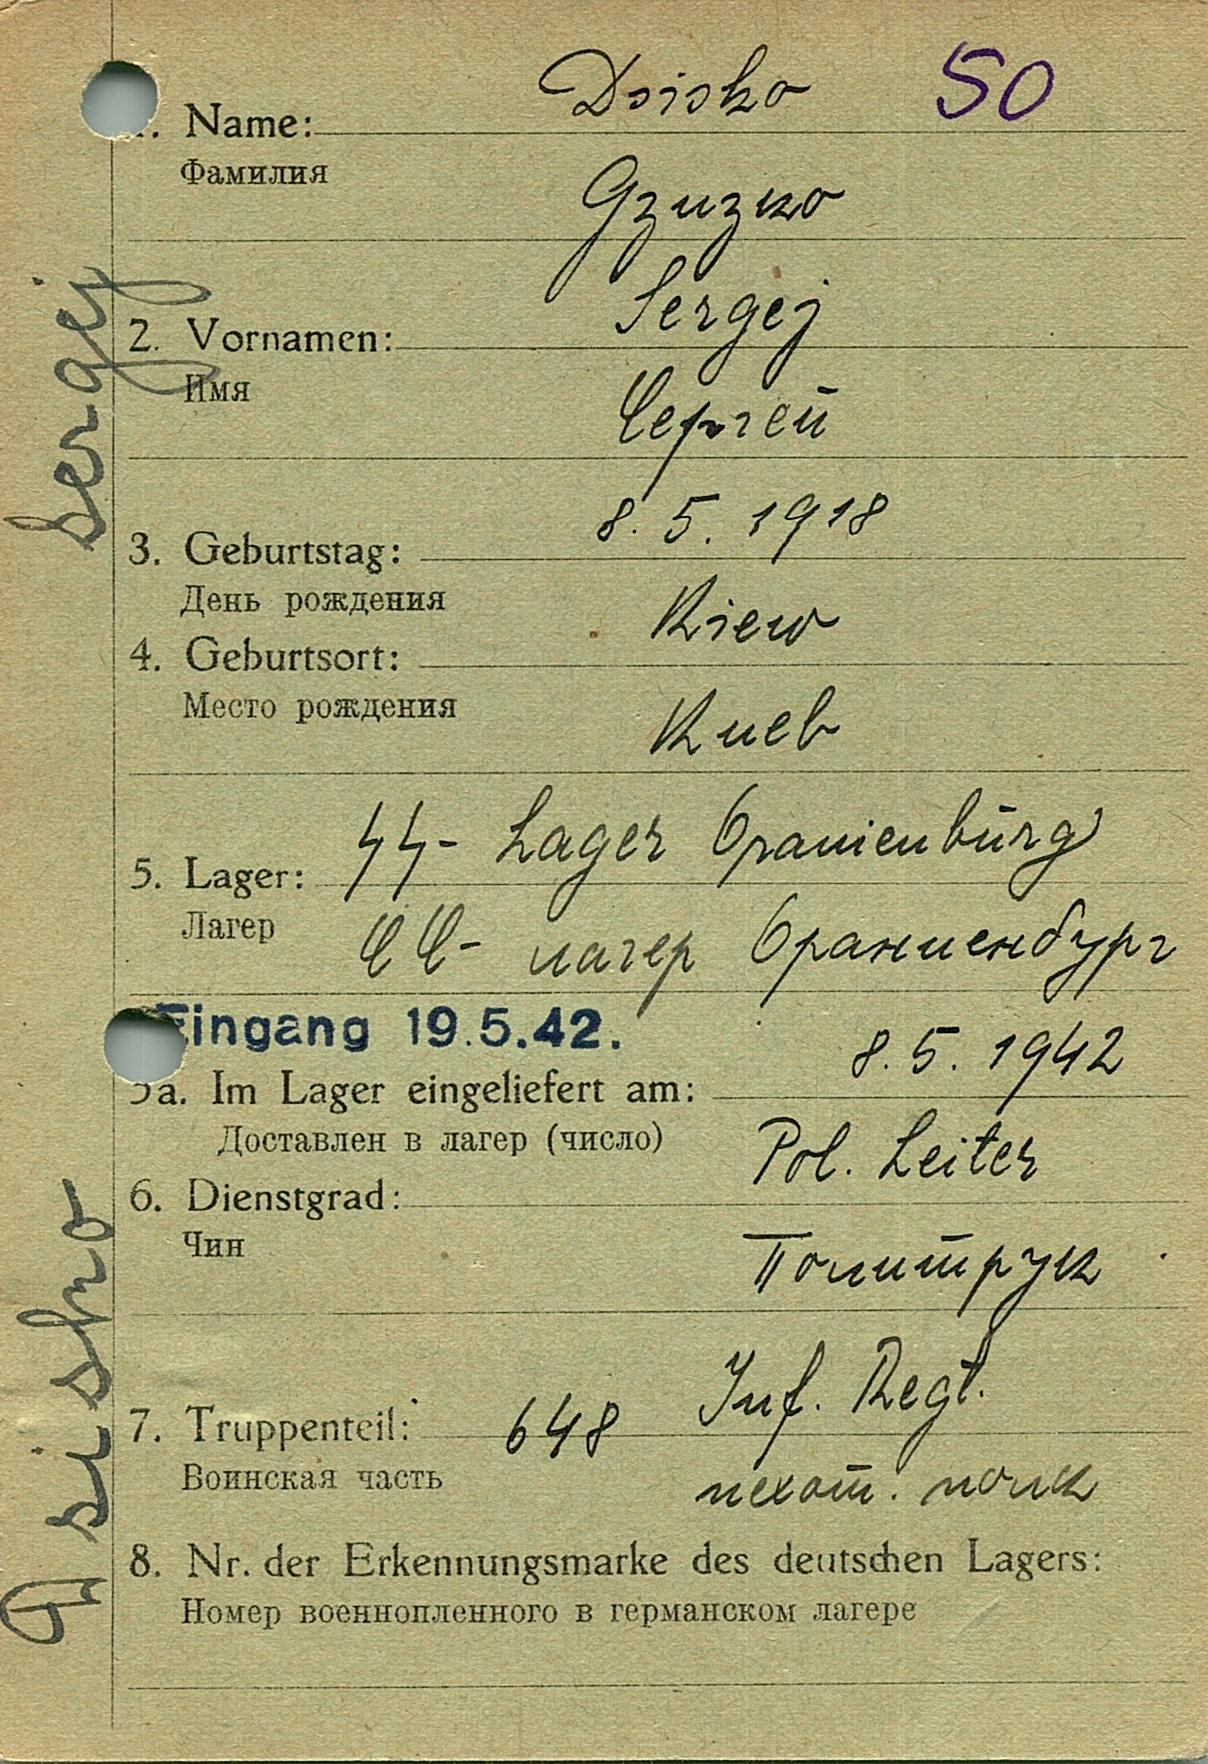 Dsisko 50
1. Name:
Фамилия
Дзизко
Sergej
2. Vornamen:
Имя
Сергей
8. 5. 1918
3. Geburtstag:
День рождения
Kiew
4. Geburtsort:
Место рождения
Киев
SS- Lager Oranienburg
5. Lager:
Лагер
СС- лагер Ораниенбург
Eingang 19.5.42.
8. 5. 1942
5a. Im Lager eingeliefert am:
Доставлен в лагер (число)
Pol. Leiter
6. Dienstgrad:
Чин
Политрук
7. Truppenteil: 648 Inf. Regt.
Воинская часть
пехот. полк
8. Nr. der Erkennungsmarke des deutschen Lagers:
Номер военнопленного в германском лагере
Dsisko Sergej